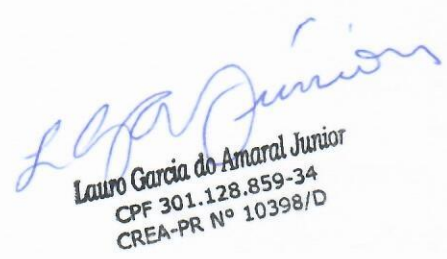 Lauro Garcia do Amaral Junior
CPF 301.128.859-34
CREA-PR Nº 10398/D